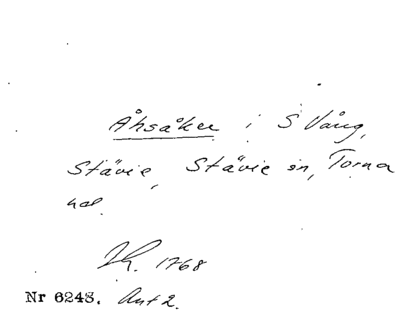 Åhsåker i S Vång,
Stävie, Stävie sn, Torna
hd.
Zk. 1768
Nr 6248. Akt 2.